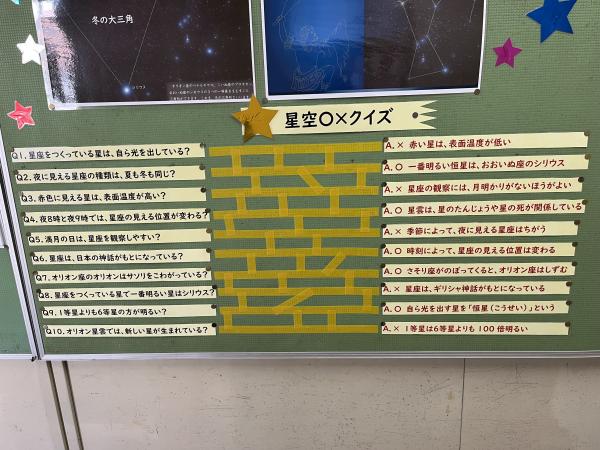 冬の大三角
シリウス
星空〇×クイズ
Q1. 星座をつくっている星は、自ら光を出している?
Q2. 夜に見える星座の種類は、夏も冬も同じ?
Q3. 赤色に見える星は、表面温度が高い?
Q4. 夜8時と夜9時では、星座の見える位置が変わる?
Q5. 満月の日は、星座を観察しやすい?
Q6. 星座は、日本の神話がもとになっている?
Q7. オリオン座のオリオンはサソリをこわがっている?
Q8. 星座をつくっている星で一番明るい星はシリウス?
Q9. 1等星よりも6等星の方が明るい?
Q10. オリオン星雲では、新しい星が生まれている?
A. × 赤い星は、表面温度が低い
A. 〇 一番明るい恒星は、おおいぬ座のシリウス
A. × 星座の観察には、月明かりがないほうがよい
A. 〇 星雲は、星のたんじょうや星の死が関係している
A. × 季節によって、夜に見える星座はちがう
A. 〇 時刻によって、星座の見える位置は変わる
A. 〇 さそり座がのぼってくると、オリオン座はしずむ
A. × 星座は、ギリシャ神話がもとになっている
A. 〇 自ら光を出す星を「恒星(こうせい)」という
A. × 1等星は6等星よりも100倍明るい